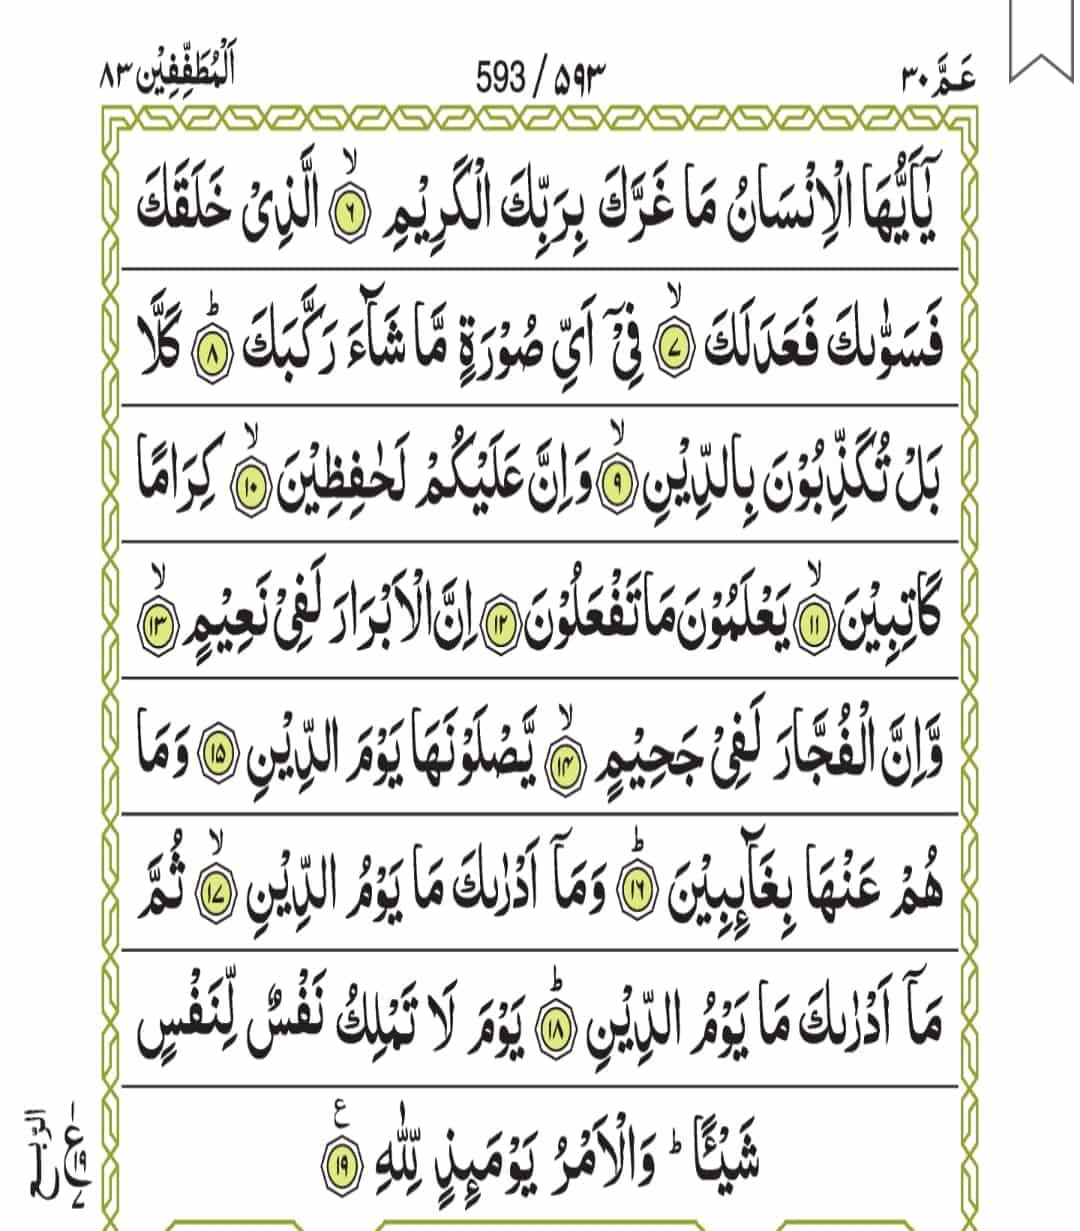 عَمَّ ۳۰ 593 / ۵۹۳ اَلْمُطَفِّفِيْن ۸۳
يٰۤاَيُّهَا الْاِنْسَانُ مَا غَرَّكَ بِرَبِّكَ الْكَرِيْمِ ۙ ۶ الَّذِىْ خَلَقَكَ
فَسَوّٰٮكَ فَعَدَلَكَ ۙ ۷ فِىْۤ اَىِّ صُوْرَةٍ مَّا شَآءَ رَكَّبَكَ ؕ ۸ كَلَّا
بَلْ تُكَذِّبُوْنَ بِالدِّيْنِ ۙ ۹ وَاِنَّ عَلَيْكُمْ لَحٰفِظِيْنَ ۙ ۱۰ كِرَامًا
كَاتِبِيْنَ ۙ ۱۱ يَعْلَمُوْنَ مَا تَفْعَلُوْنَ ۱۲ اِنَّ الْاَبْرَارَ لَفِىْ نَعِيْمٍ ۙ ۱۳
وَّاِنَّ الْفُجَّارَ لَفِىْ جَحِيْمٍ ۙ ۱۴ يَّصْلَوْنَهَا يَوْمَ الدِّيْنِ ۱۵ وَمَا
هُمْ عَنْهَا بِغَآٮِٕبِيْنَ ؕ ۱۶ وَمَاۤ اَدْرٰٮكَ مَا يَوْمُ الدِّيْنِ ۙ ۱۷ ثُمَّ
مَاۤ اَدْرٰٮكَ مَا يَوْمُ الدِّيْنِ ؕ ۱۸ يَوْمَ لَا تَمْلِكُ نَفْسٌ لِّنَفْسٍ
شَيْـًٔـا ؕ وَالْاَمْرُ يَوْمَٮِٕذٍ لِّلّٰهِ ۱۹ ع
ع ۱ ۱۹ ۷